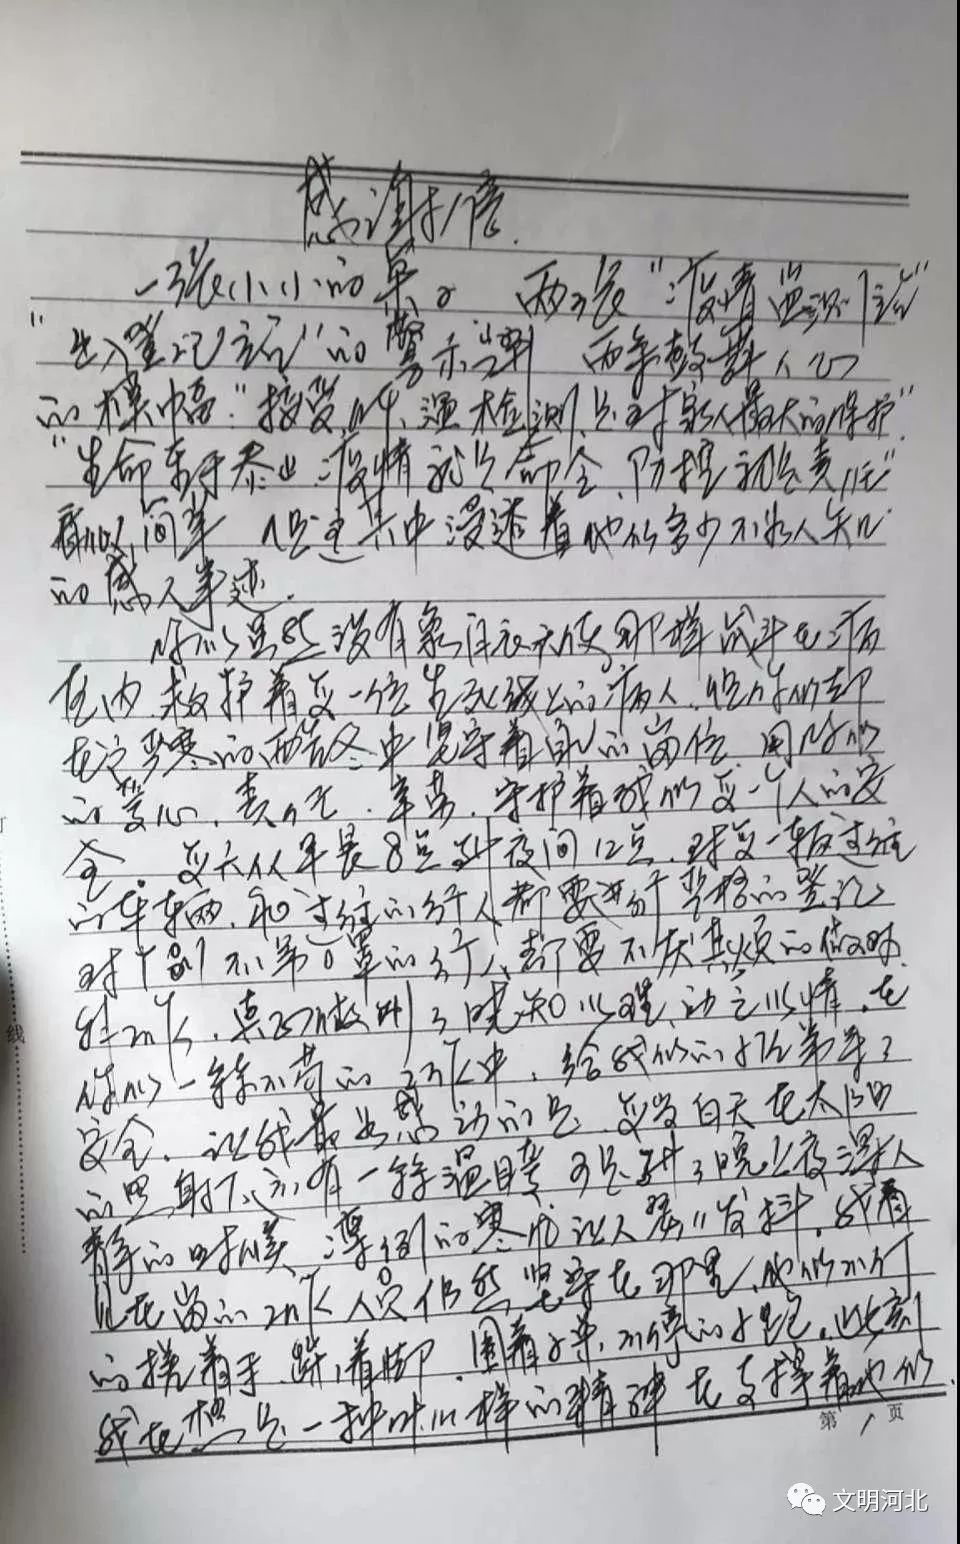 感谢信
一张小小的桌子 两张"疫情监测站"
"出入登记站"的警示牌 两条鼓舞人心
的横幅"接受体温检测是对家人最大的保护"
"生命重于泰山 疫情就是命令、防控就是责任"
看似简单 但这其中浸透着他们多少不为人知
的感人事迹.
你们虽然没有象白衣天使那样战斗在病
区内、救护着每一位生死线上的病人、但你们却
在这严寒的寒冬中坚守着自己的岗位、用你们
的爱心、责任、辛劳、守护着我们每一个人的安
全。每天从早晨8点到夜间12点、对每一辆过往
的车辆、和过往的行人都要进行严格的登记
对个别不带口罩的行人、都要不厌其烦的做好
工作、真正做到了晓知以理、动之以情、在
你们一丝不苟的工作中、给我们的小区带来了
安全、让我最为感动的是、每当白天在太阳
的照射下、还有一丝温暖 可是到了晚上夜深人
静的时候、凛冽的寒风让人瑟瑟发抖、我看
见在岗的工作人员仍然坚守在那里、他们不停
的搓着手、跺着脚、围着桌、不停的小跑、此刻
我在想是一种什么样的精神在支撑着他们
第1页
线
文明河北